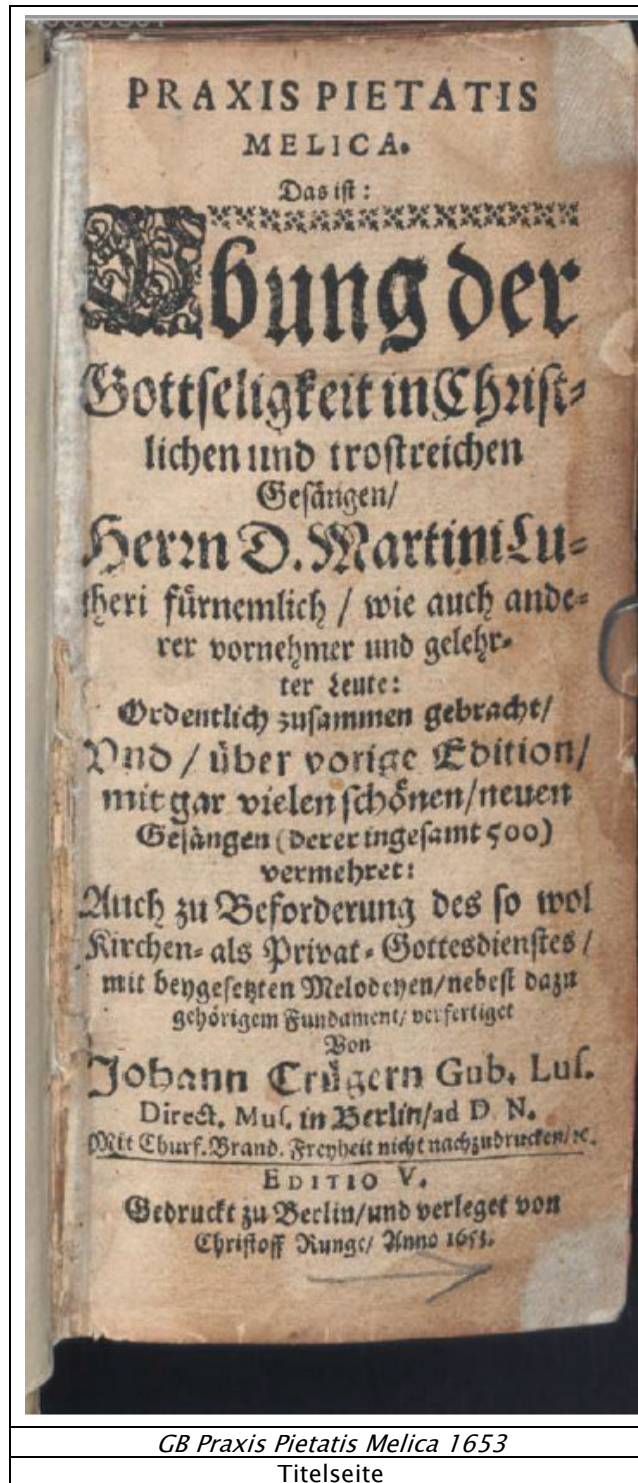 PRAXIS PIETATIS
MELICA.
Das ist:
Ubung der
Gottseligkeit in Christ-
lichen und trostreichen
Gesängen/
Herrn D. Martini Lu-
theri fürnemlich / wie auch ande-
rer vornehmer und gelehr-
ter Leute:
Ordentlich zusammen gebracht/
Vnd / über vorige Edition/
mit gar vielen schönen/neuen
Gesängen (derer ingesamt 500)
vermehret:
Auch zu Beforderung des so wol
Kirchen- als Privat-Gottesdienstes /
mit beygesetzten Melodeyen/nebest dazu
gehörigem Fundament/ verfertiget
Von
Johann Crügern Gub. Lus.
Direct. Mus. in Berlin/ad D. N.
Mit Churf. Brand. Freyheit nicht nachzudrucken/ꝛc.
EDITIO V.
Gedruckt zu Berlin/und verleget von
Christoff Runge/ Anno 1653.
GB Praxis Pietatis Melica 1653
Titelseite